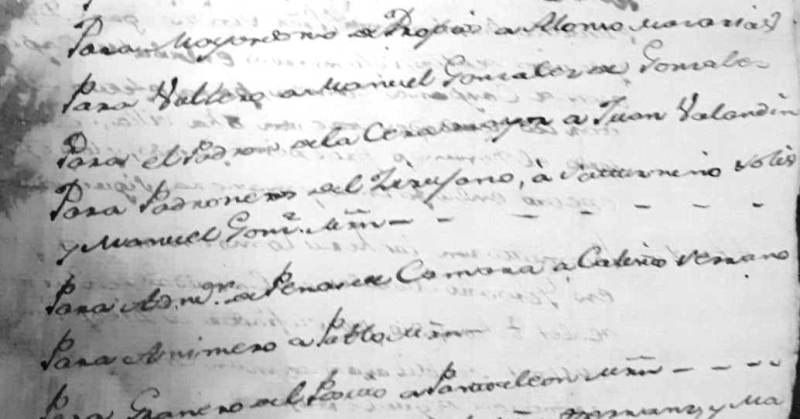 Para Mayordomo de Propios a Alonso Macarias
Para Vallero a Manuel Gonzalez de Gonzalez
Para el Padron de la Cera mayor a Juan Valandin
Para Padroneros del Zirujano, à Saturnino Solis
y Manuel Gonz.ª Mrñ — — — — — — —
Para Adm.or de Penas de Camara à Calisto Serrano
Para Animero a Pablo Mrñ
Para Granero del Posito a Pantaleon Mrñ — — — —
y Ma